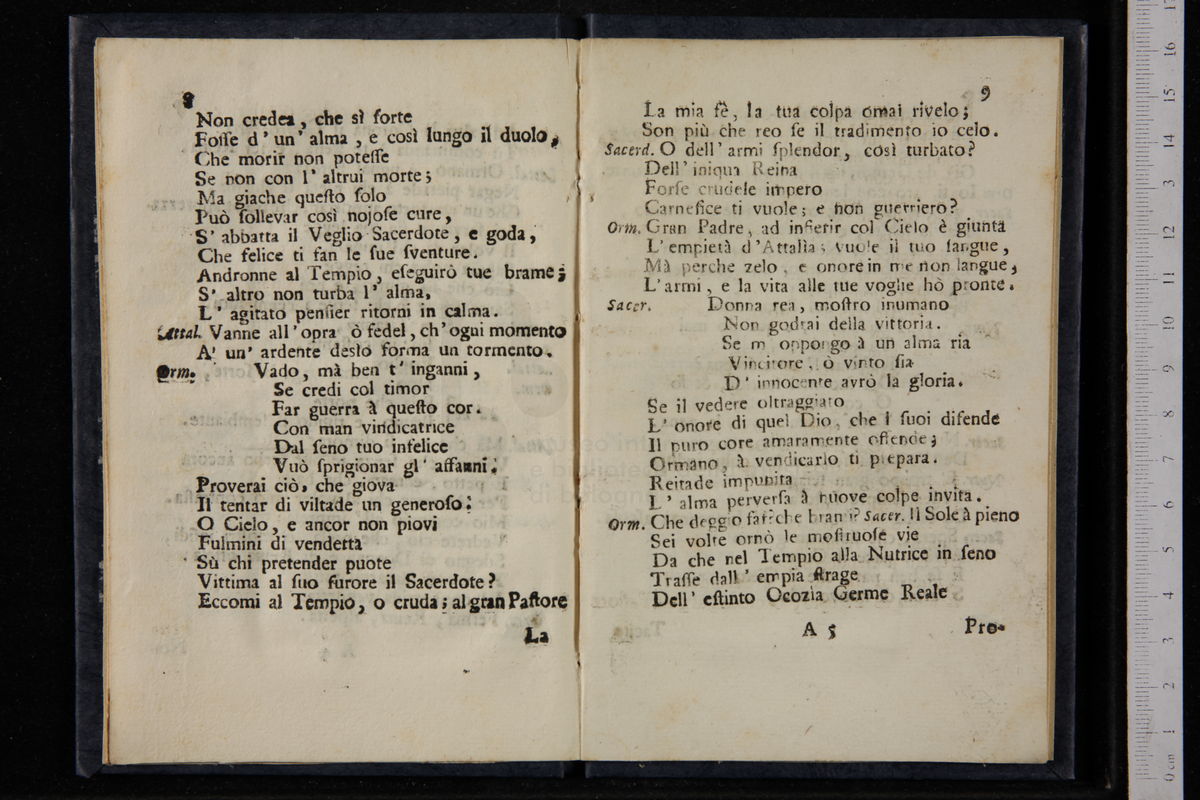 8
Non credea, che sì forte
Foſſe d'un' alma, e così lungo il duolo,
Che morir non poteſſe
Se non con l' altrui morte;
Ma giache queſto ſolo
Può ſollevar così nojoſe cure,
S' abbatta il Veglio Sacerdote, e goda,
Che felice ti fan le ſue ſventure.
Andronne al Tempio, eſeguirò tue brame;
S' altro non turba l' alma,
L' agitato penſier ritorni in calma.
Attal. Vanne all' opra ò fedel, ch' ogni momento
A' un' ardente desìo forma un tormento.
Orm. Vado, mà ben t' inganni,
Se credi col timor
Far guerra à queſto cor.
Con man vindicatrice
Dal ſeno tuo infelice
Vuò ſprigionar gl' affanni.
Proverai ciò, che giova
Il tentar di viltade un generoſo:
O Cielo, e ancor non piovi
Fulmini di vendetta
Sù chi pretender puote
Vittima al ſuo furore il Sacerdote?
Eccomi al Tempio, o cruda; al gran Paſtore
La
9
La mia fè, la tua colpa omai rivelo;
Son più che reo ſe il tradimento io celo.
Sacerd. O dell' armi ſplendor, così turbato?
Dell' iniqua Reina
Forſe crudele impero
Carnefice ti vuole; e non guerriero?
Orm. Gran Padre, ad inſierir col Cielo è giunta
L' empietà d'Attalìa; vuole il tuo ſangue,
Mà perche zelo, e onore in me non langue,
L' armi, e la vita alle tue voglie hò pronte.
Sacer. Donna rea, moſtro inumano
Non godrai della vittoria.
Se m' oppongo à un alma ria
Vincitore, ò vinto ſia
D' innocente avrò la gloria.
Se il vedere oltraggiato
L' onore di quel Dio, che i ſuoi difende
Il puro core amaramente offende;
Ormano, à vendicarlo ti prepara.
Reitade impunita
L' alma perverſa à nuove colpe invita.
Orm. Che deggio far? che brami? Sacer. Il Sole à pieno
Sei volte ornò le moſtruoſe vie
Da che nel Tempio alla Nutrice in ſeno
Traſſe dall' empia ſtrage
Dell' eſtinto Ocozìa Germe Reale
A 5
Pro-